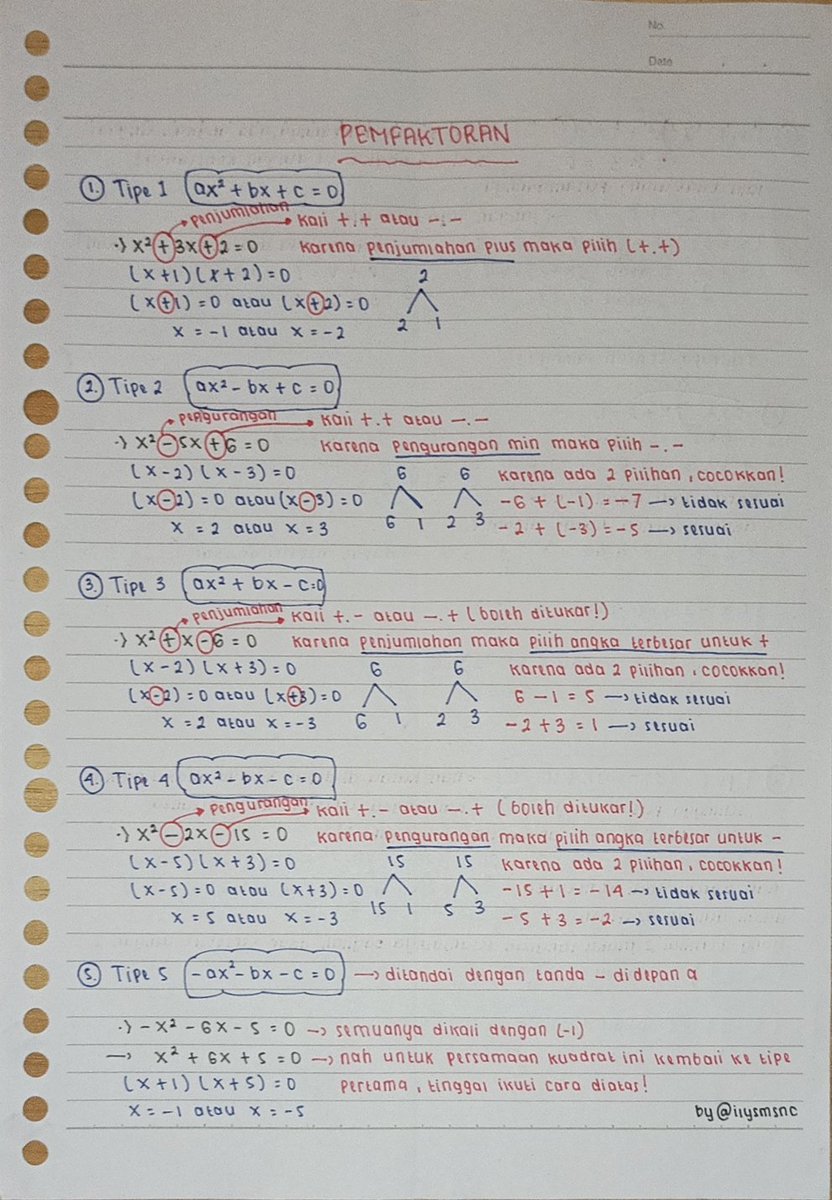 No.
Date
PEMFAKTORAN
① Tipe 1 ax² + bx + c = 0
Penjumlahan kali +.+ atau -.-
·) x² + 3x + 2 = 0 karena penjumlahan plus maka pilih (+.+)
(x+1)(x+2) = 0 2
(x+1) = 0 atau (x+2) = 0 2 1
x = -1 atau x = -2
② Tipe 2 ax² - bx + c = 0
pengurangan kali +.+ atau -.-
·) x² - 5x + 6 = 0 karena pengurangan min maka pilih -.-
(x-2)(x-3) = 0 6 6 karena ada 2 pilihan, cocokkan!
(x-2) = 0 atau (x-3) = 0 6 1 2 3 -6 + (-1) = -7 → tidak sesuai
x = 2 atau x = 3 -2 + (-3) = -5 → sesuai
③ Tipe 3 ax² + bx - c = 0
penjumlahan kali +.- atau -.+ (boleh ditukar!)
·) x² + x - 6 = 0 karena penjumlahan maka pilih angka terbesar untuk +
(x-2)(x+3) = 0 6 6 karena ada 2 pilihan, cocokkan!
(x-2) = 0 atau (x+3) = 0 6 1 2 3 6 - 1 = 5 → tidak sesuai
x = 2 atau x = -3 -2 + 3 = 1 → sesuai
④ Tipe 4 ax² - bx - c = 0
pengurangan kali +.- atau -.+ (boleh ditukar!)
·) x² - 2x - 15 = 0 karena pengurangan maka pilih angka terbesar untuk -
(x-5)(x+3) = 0 15 15 karena ada 2 pilihan, cocokkan!
(x-5) = 0 atau (x+3) = 0 15 1 5 3 -15 + 1 = -14 → tidak sesuai
x = 5 atau x = -3 -5 + 3 = -2 → sesuai
⑤ Tipe 5 -ax² - bx - c = 0 → ditandai dengan tanda - di depan a
·) -x² - 6x - 5 = 0 → semuanya dikali dengan (-1)
→ x² + 6x + 5 = 0 → nah untuk persamaan kuadrat ini kembali ke tipe
(x+1)(x+5) = 0 pertama, tinggal ikuti cara diatas!
x = -1 atau x = -5 by@ilysmsnc